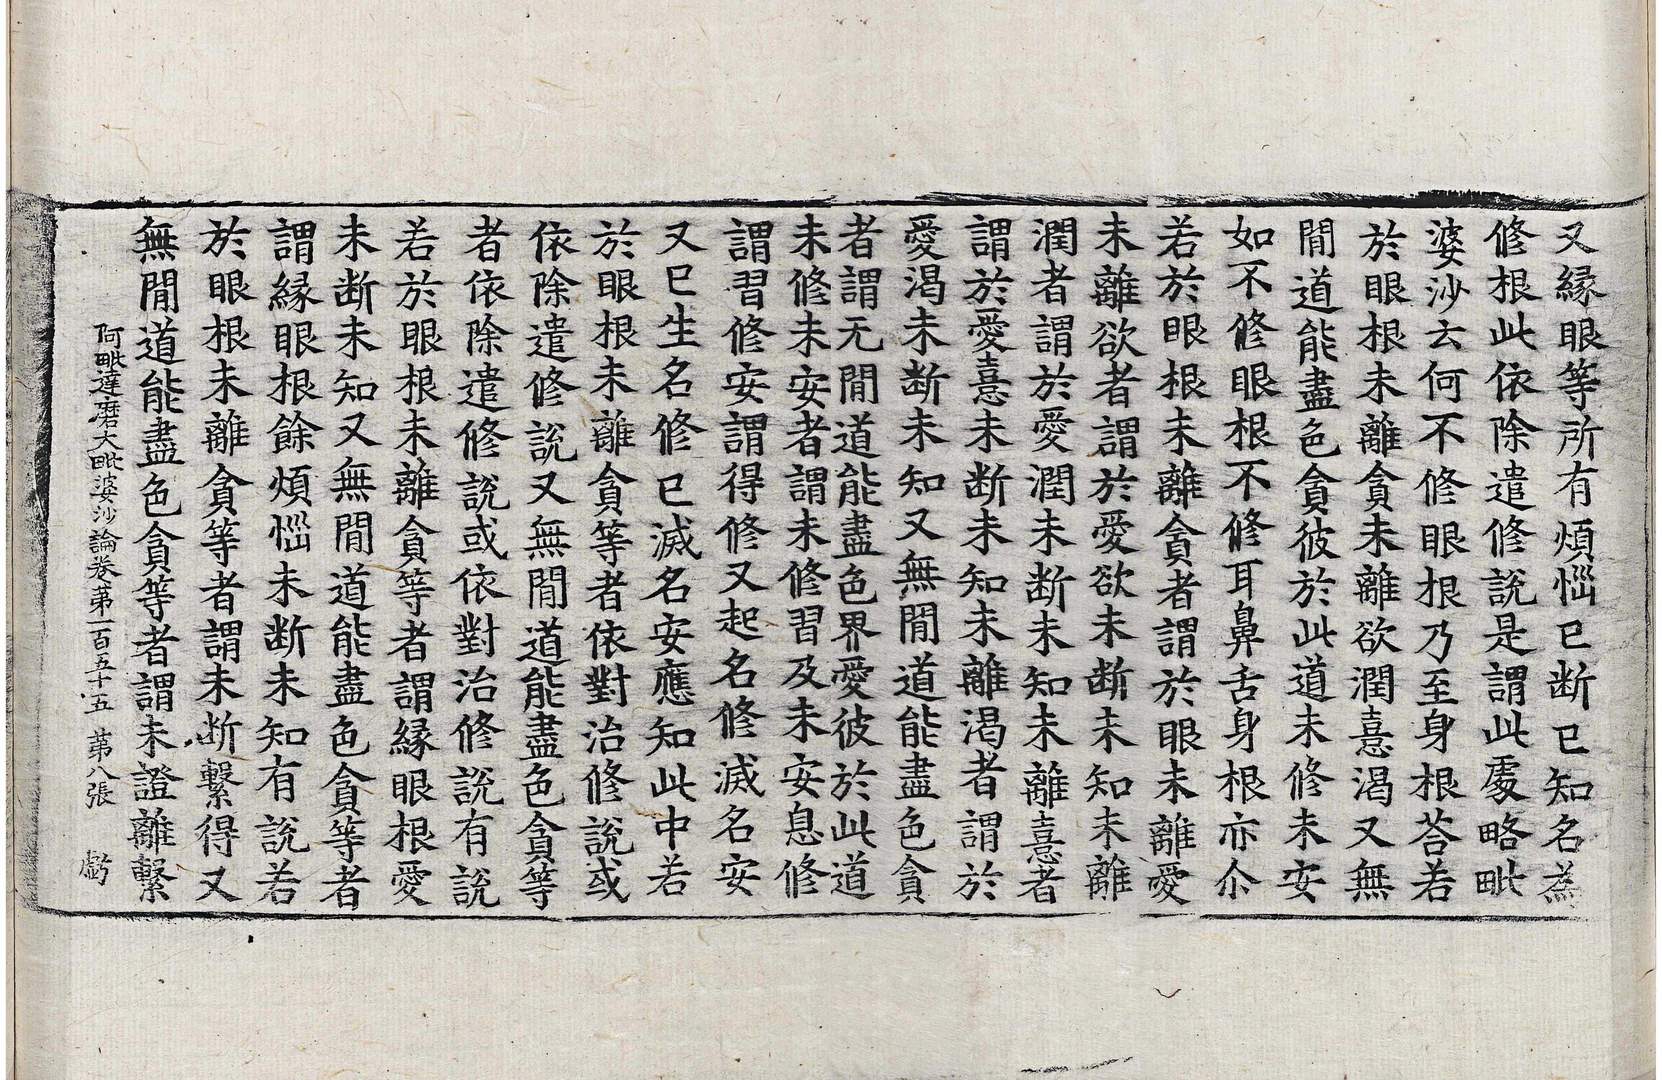 又緣眼等所有煩惱已断已知名為
修根此依除遣修說是謂此處略毗
婆沙云何不修眼根乃至身根荅若
於眼根未離貪未離欲潤憙渴又無
閒道能盡色貪彼於此道未修未安
如不修眼根不修耳鼻舌身根亦尒
若於眼根未離貪者謂於眼未離愛
未離欲者謂於愛欲未断未知未離
潤者謂於愛潤未断未知未離憙者
謂於愛憙未断未知未離渴者謂於
愛渴未断未知又無閒道能盡色貪
者謂无閒道能盡色界愛彼於此道
未修未安者謂未修習及未安息修
謂習修安謂得修又起名修滅名安
又已生名修已滅名安應知此中若
於眼根未離貪等者依對治修說或
依除遣修說又無閒道能盡色貪等
者依除遣修說或依對治修說有說
若於眼根未離貪等者謂緣眼根愛
未断未知又無閒道能盡色貪等者
謂緣眼根餘煩惱未断未知有說若
於眼根未離貪等者謂未断繫得又
無閒道能盡色貪等者謂未證離繫
阿毗達磨大毗婆沙論卷第一百五十五 第八張 虧